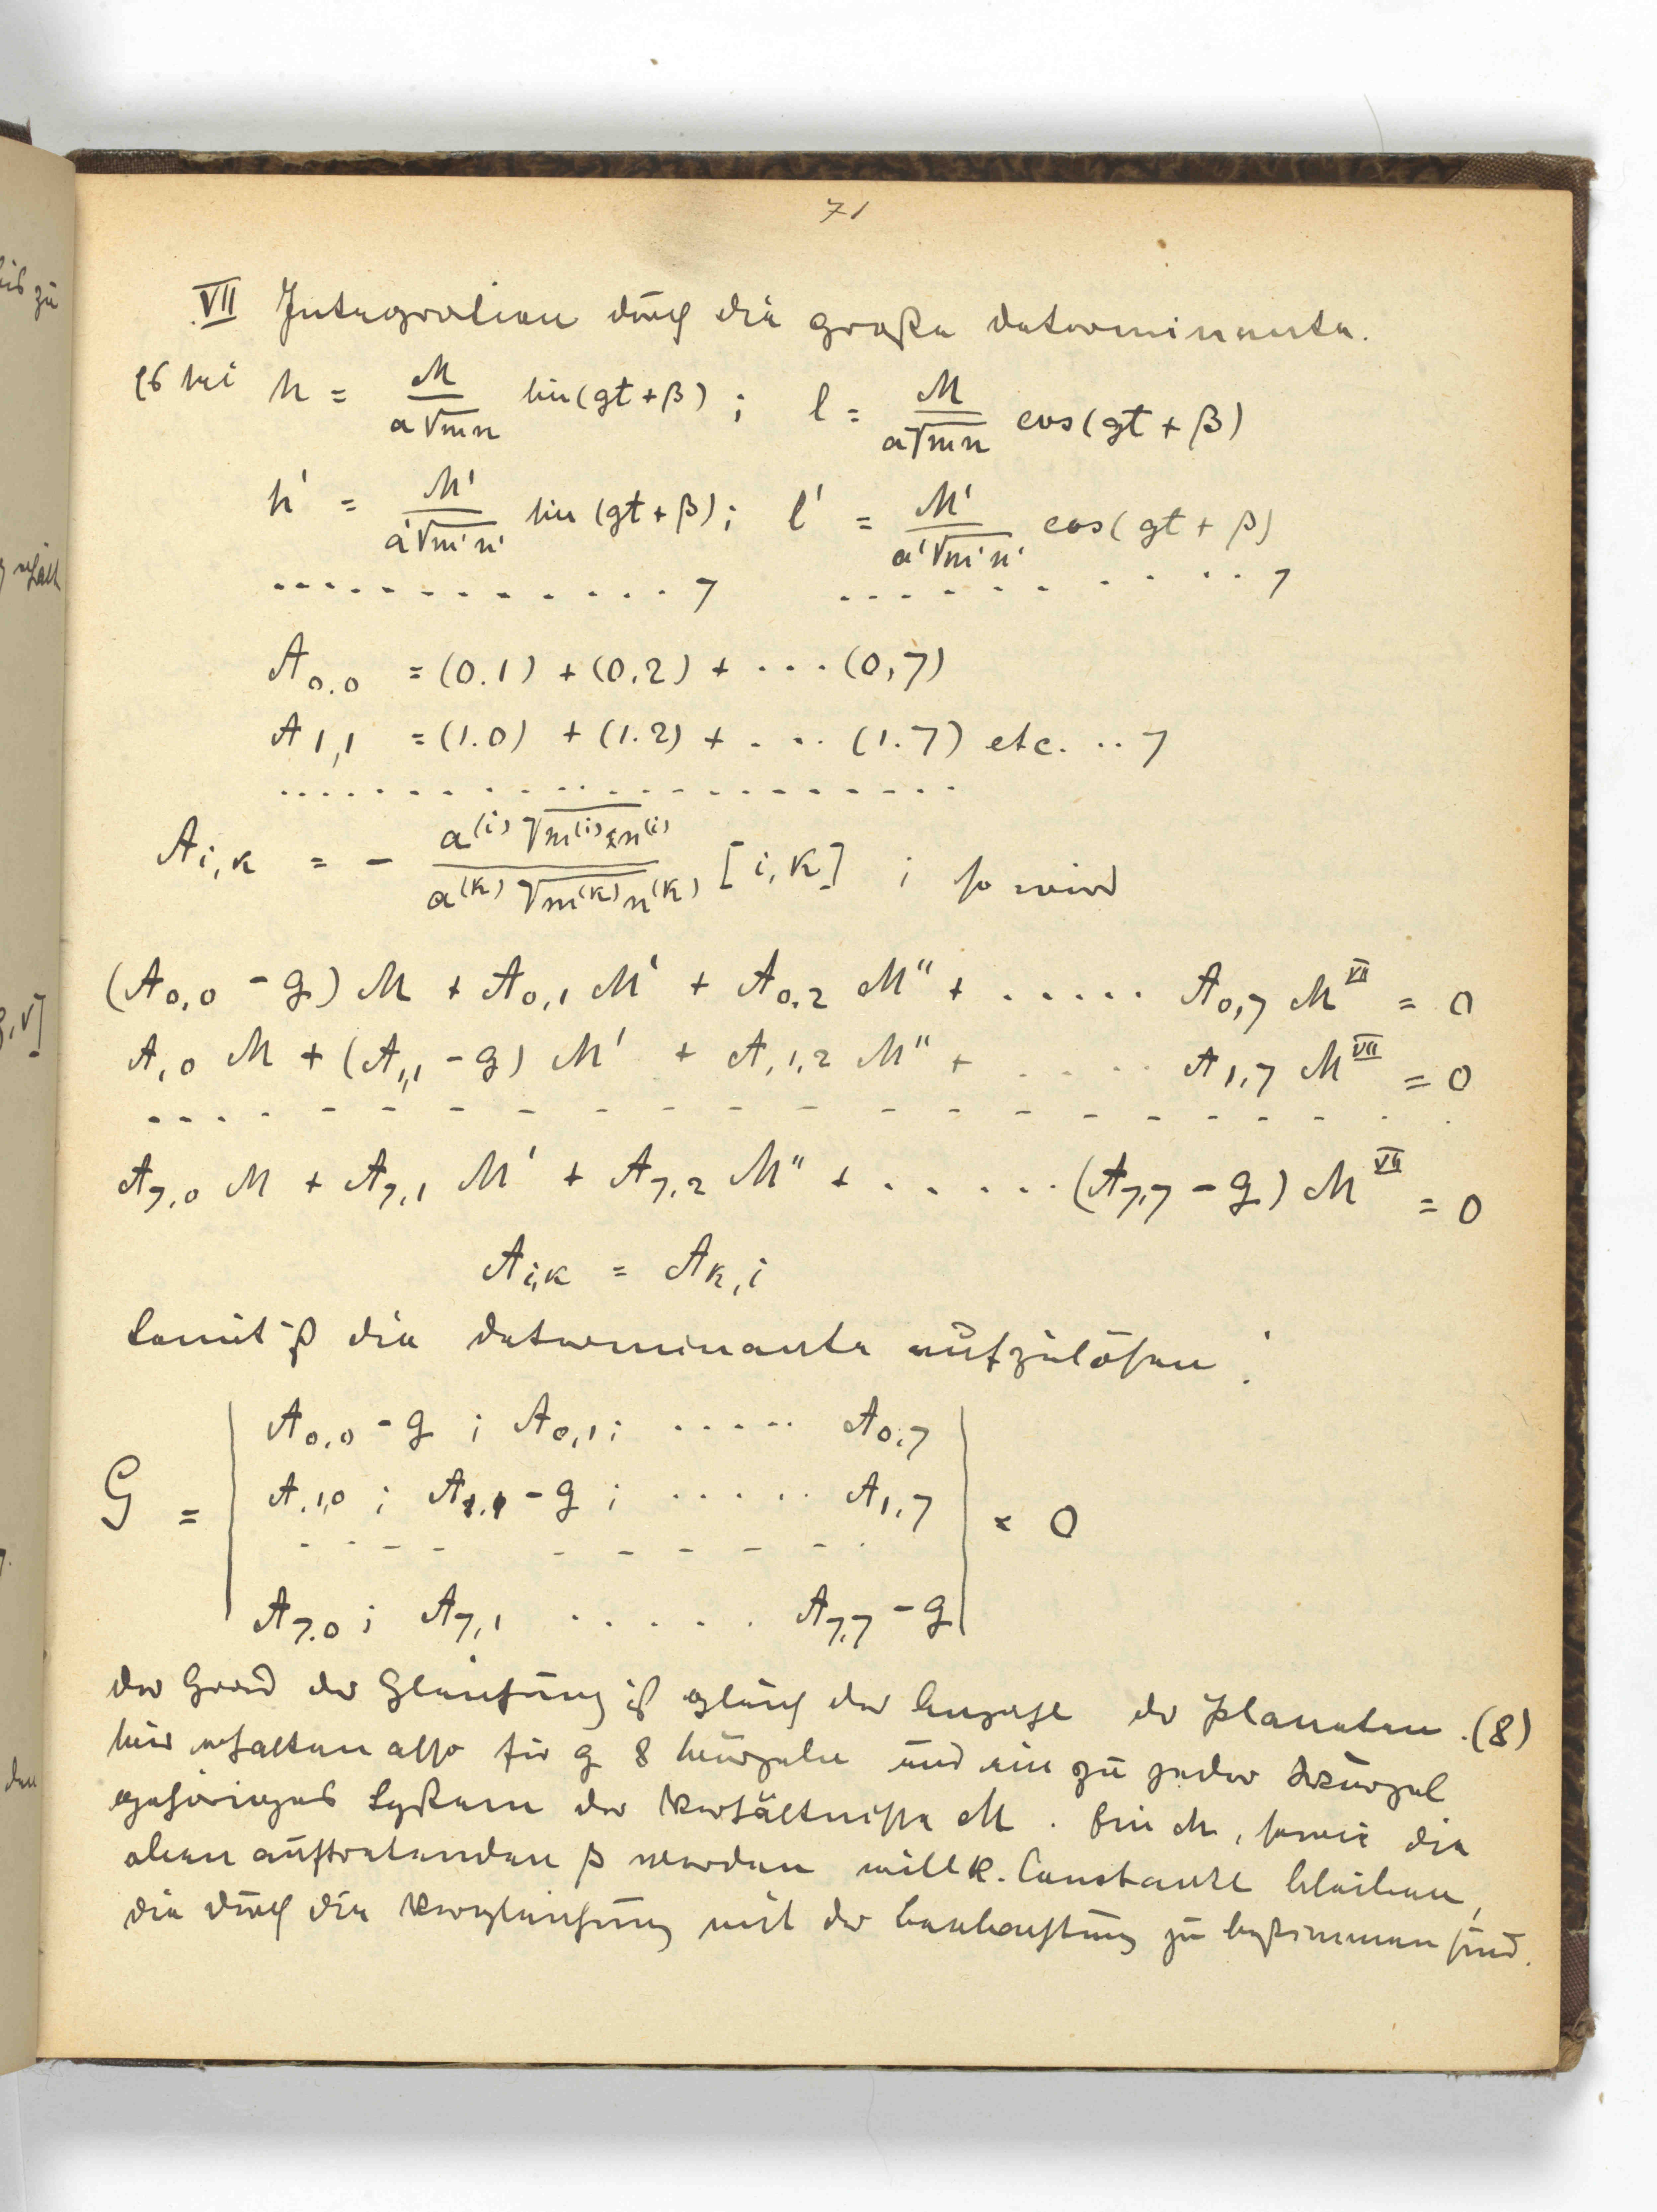 71
VII Integration durch die große Determinante.
Es sei h = M / a√mn sin(gt + β) ; l = M / a√mn cos(gt + β)
h' = M' / a'√m'n' sin(gt + β) ; l' = M' / a'√m'n' cos(gt + β)
. . . . . . . . . . . . 7 . . . . . . . . . . 7
A0.0 = (0.1) + (0.2) + ... (0,7)
A1,1 = (1.0) + (1.2) + ... (1.7) etc. .. 7
. . . . . . . . . . . . . . . . . . . .
Ai,k = - a(i) √m(i)n(i) / a(k) √m(k)n(k) [i,k] ; so wird
(A0,0 - g) M + A0,1 M' + A0.2 M'' + ..... A0,7 M^VII = 0
A1,0 M + (A1,1 - g) M' + A1,2 M'' + ..... A1,7 M^VII = 0
- - - - - - - - - - - - - - - - - - - -
A7,0 M + A7,1 M' + A7,2 M'' + ..... (A7,7 - g) M^VII = 0
Ai,k = Ak,i
Somit ist die Determinante aufzulösen:
A0,0 - g ; A0,1 ; ..... A0,7
G = A1,0 ; A1,1 - g ; ..... A1,7 = 0
- - - - - - - - - -
A7.0 ; A7,1 ...... A7,7 - g
Der Grad der Gleichung ist gleich der Anzahl der Planeten. (8)
Wir erhalten also für g 8 Wurzeln und ein zu jeder Wurzel
gehöriges System der Verhältnisse M. Ein M, sowie die
oben auftretenden β werden willk. Constante bleiben,
die durch die Vergleichung mit der Beobachtung zu bestimmen sind.